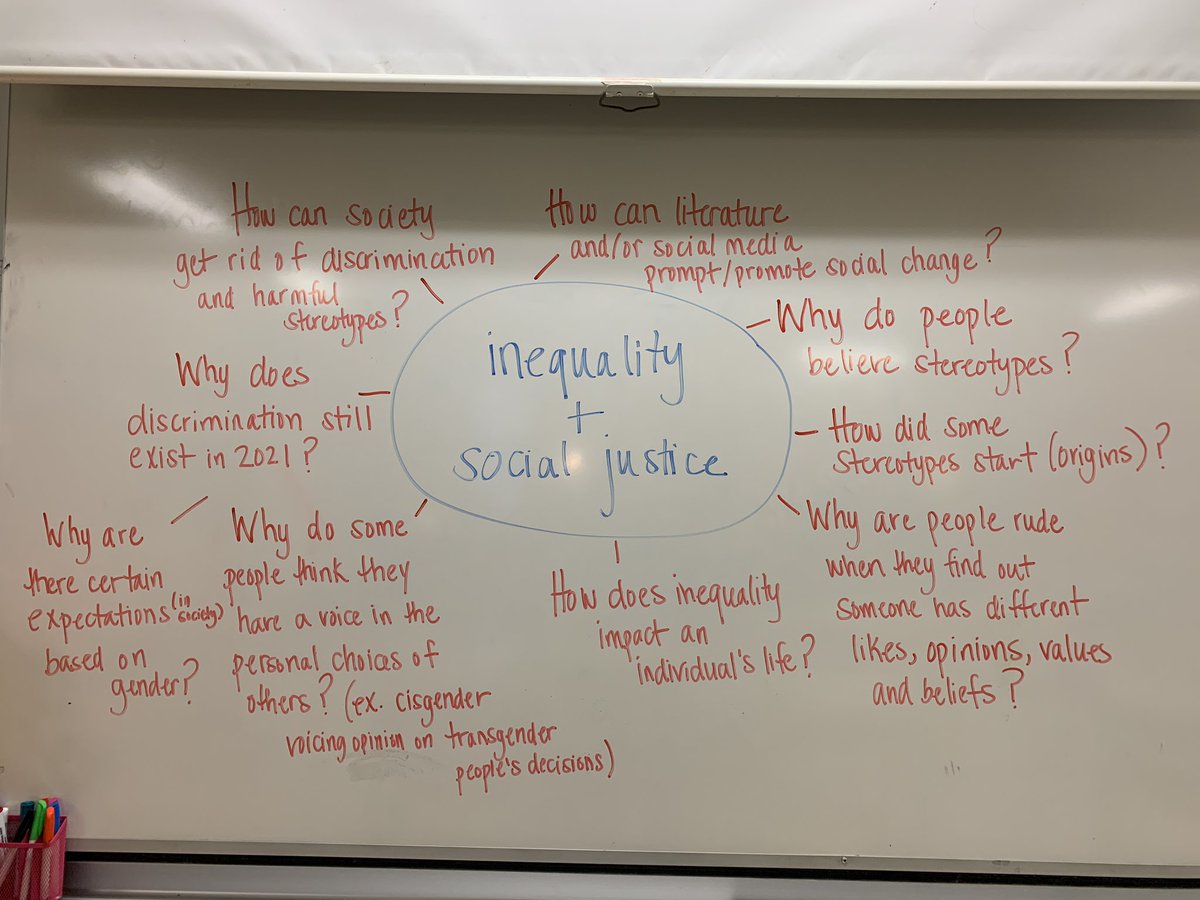 How can society
get rid of discrimination
and harmful
stereotypes?
How can literature
and/or social media
prompt/promote social change?
Why do people
believe stereotypes?
How did some
stereotypes start (origins)?
Why are people rude
when they find out
someone has different
likes, opinions, values
and beliefs?
How does inequality
impact an
individual's life?
Why do some
people think they
have a voice in the
personal choices of
others? (ex. cisgender
voicing opinion on transgender
people's decisions)
Why are
there certain
expectations (in society)
based on
gender?
Why does
discrimination still
exist in 2021?
inequality
+
social justice